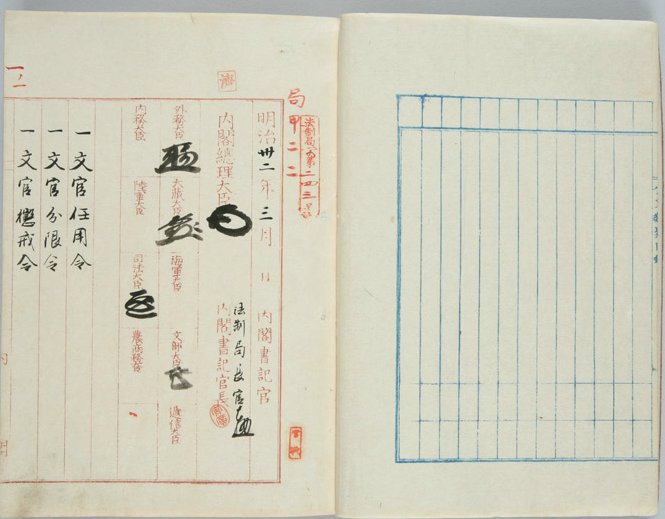 局
甲二二
明治卅二年三月 日
内閣書記官
内閣總理大臣
法制局長官
内閣書記官長
外務大臣
大藏大臣
海軍大臣
文部大臣
遞信大臣
内務大臣
陸軍大臣
司法大臣
農商務大臣
一文官任用令
一文官分限令
一文官懲戒令